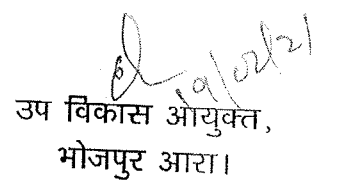 19/02/21
उप विकास आयुक्त,
भोजपुर आरा।